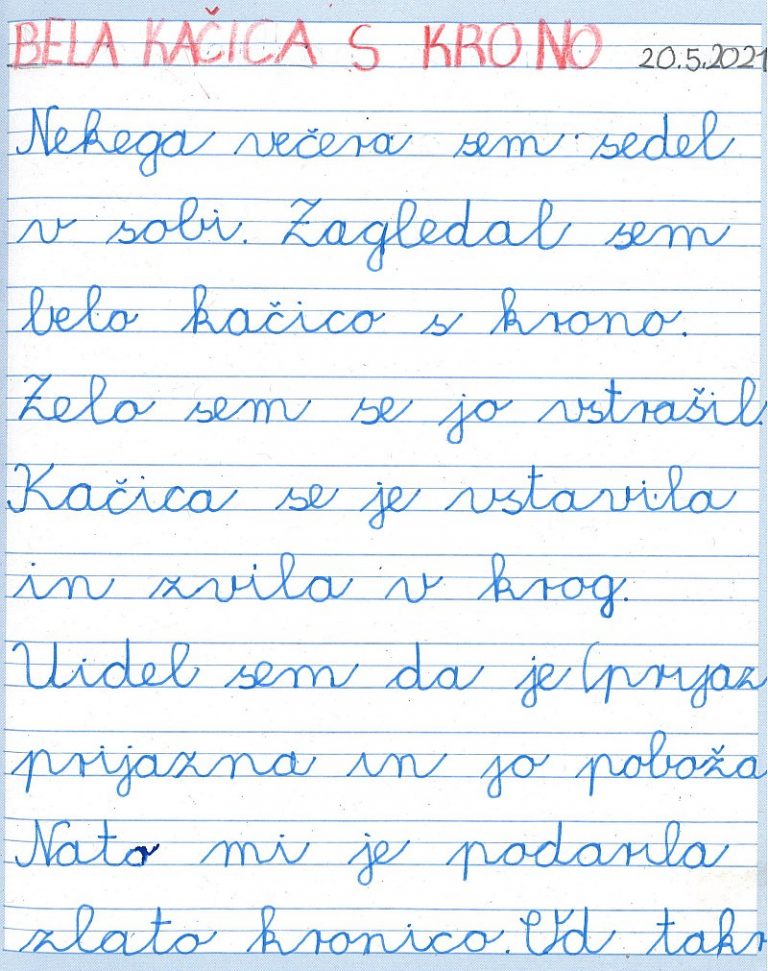 BELA KAČICA S KRONO 20.5.2021
Nekega večera sem sedel
v sobi. Zagledal sem
belo kačico s krono.
Zelo sem se jo vstrašil.
Kačica se je vstavila
in zvila v krog.
Uidel sem da je (prijaz
prijazna in jo poboža
Nato mi je podarila
zlato kronico. Od takr